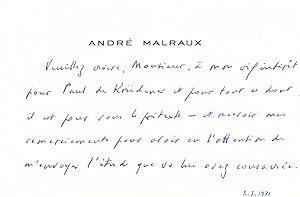 ANDRÉ MALRAUX
Veuillez croire, Monsieur, à mon vif intérêt
pour Paul de Krüdener et pour tout ce dont
il est pour vous le prétexte – et recevoir mes
remerciements pour avoir eu l'attention de
m'envoyer l'étude que vs lui avez consacrée.
5.3.1971